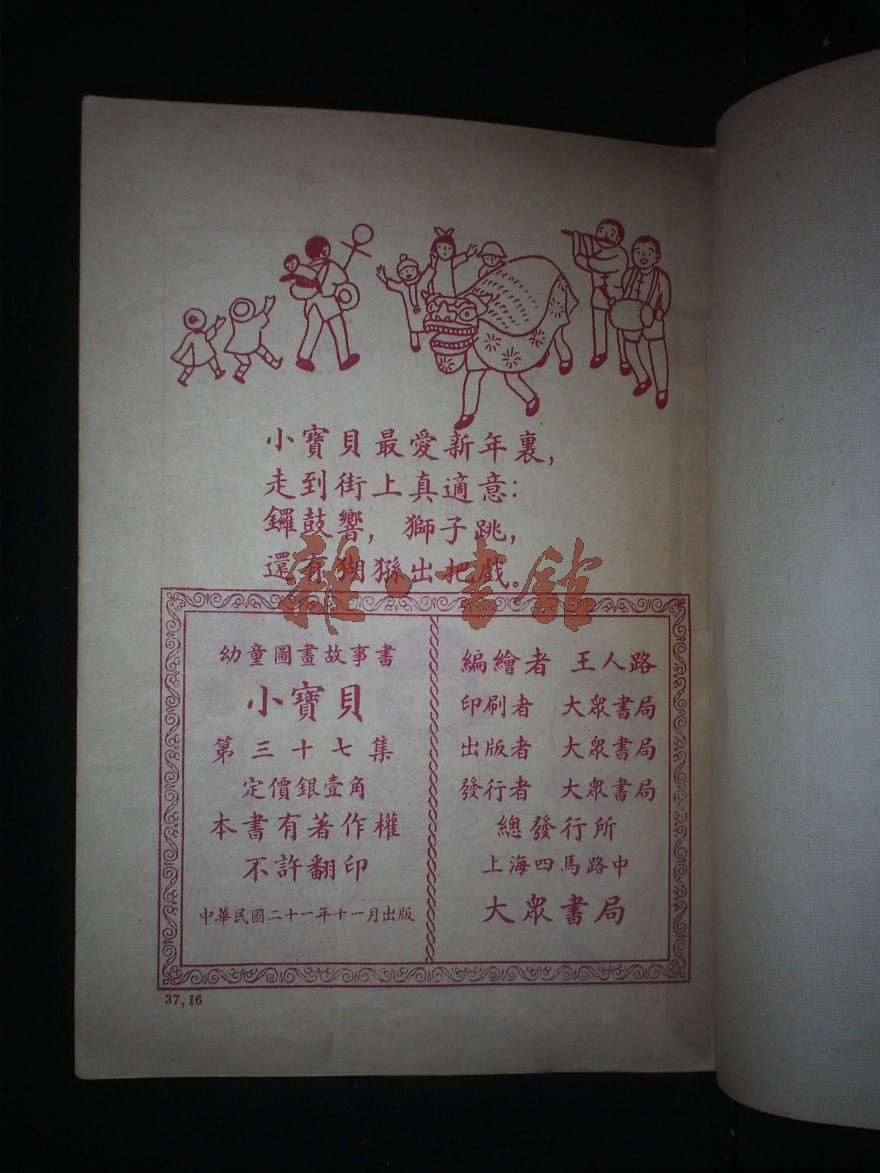 小寶貝最愛新年裏,
走到街上真適意:
鑼鼓響, 獅子跳,
還有猢猻出把戲。
雜·書館
幼童圖畫故事書
小寶貝
第三十七集
定價銀壹角
本書有著作權
不許翻印
中華民國二十一年十一月出版
編繪者 王人路
印刷者 大眾書局
出版者 大眾書局
發行者 大眾書局
總發行所
上海四馬路中
大眾書局
37, 16